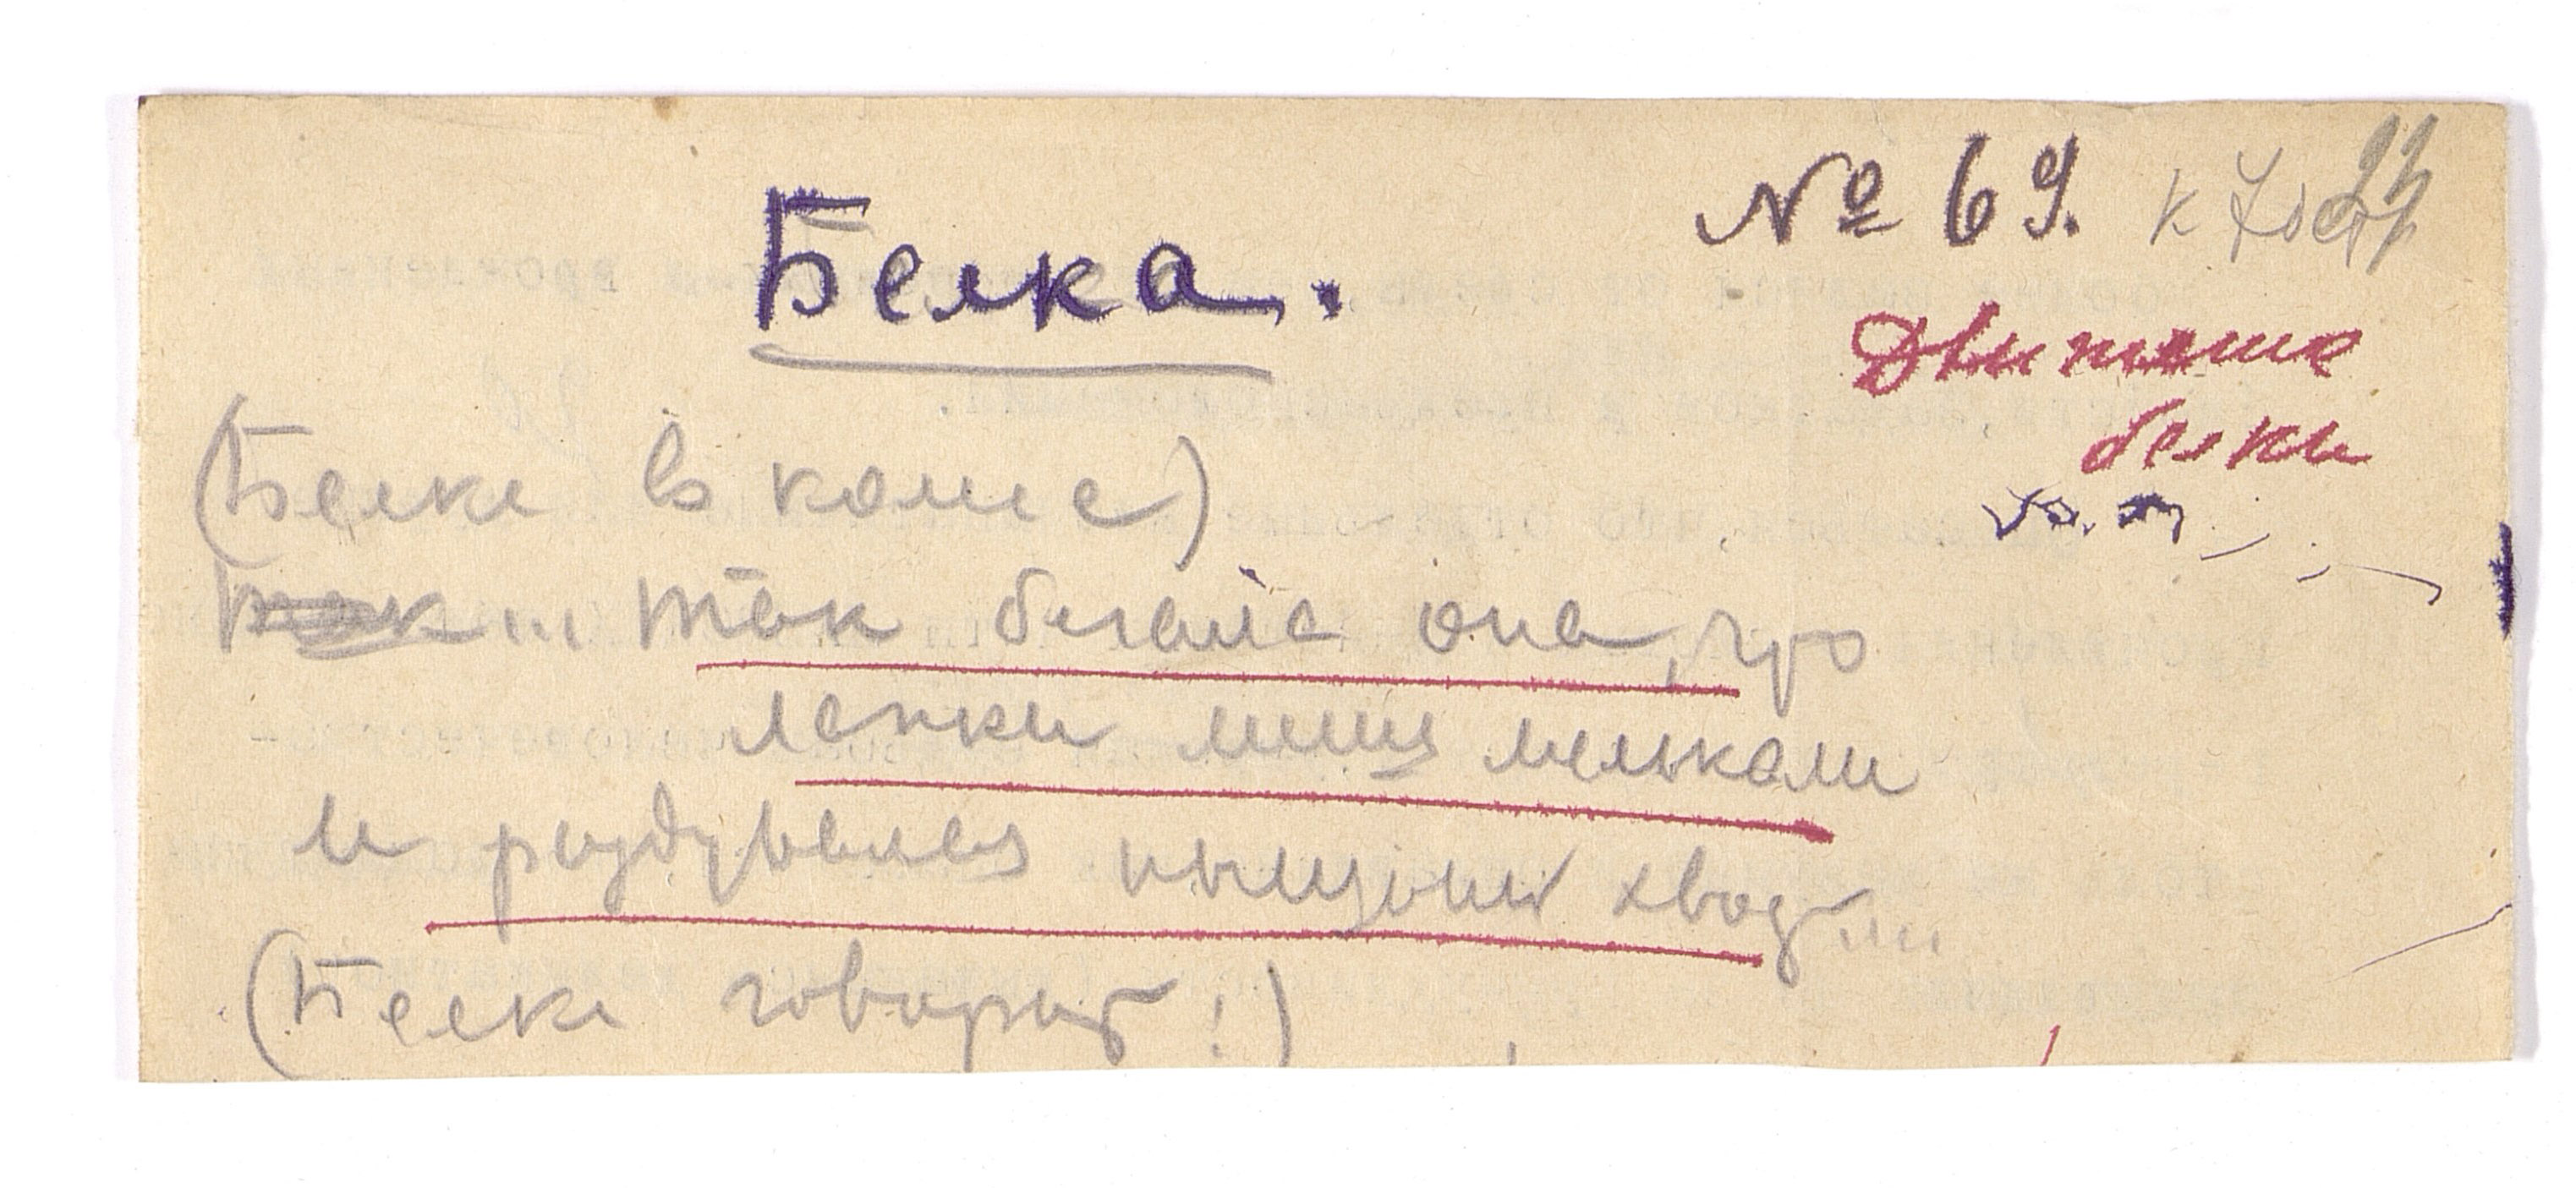 № 69. к
Белка.
Движение
белки
(Белка в колесе)
так... так бегала она, что
лапки лишь мелькали
и раздувался пышный хвост...
(Белка говорит!)